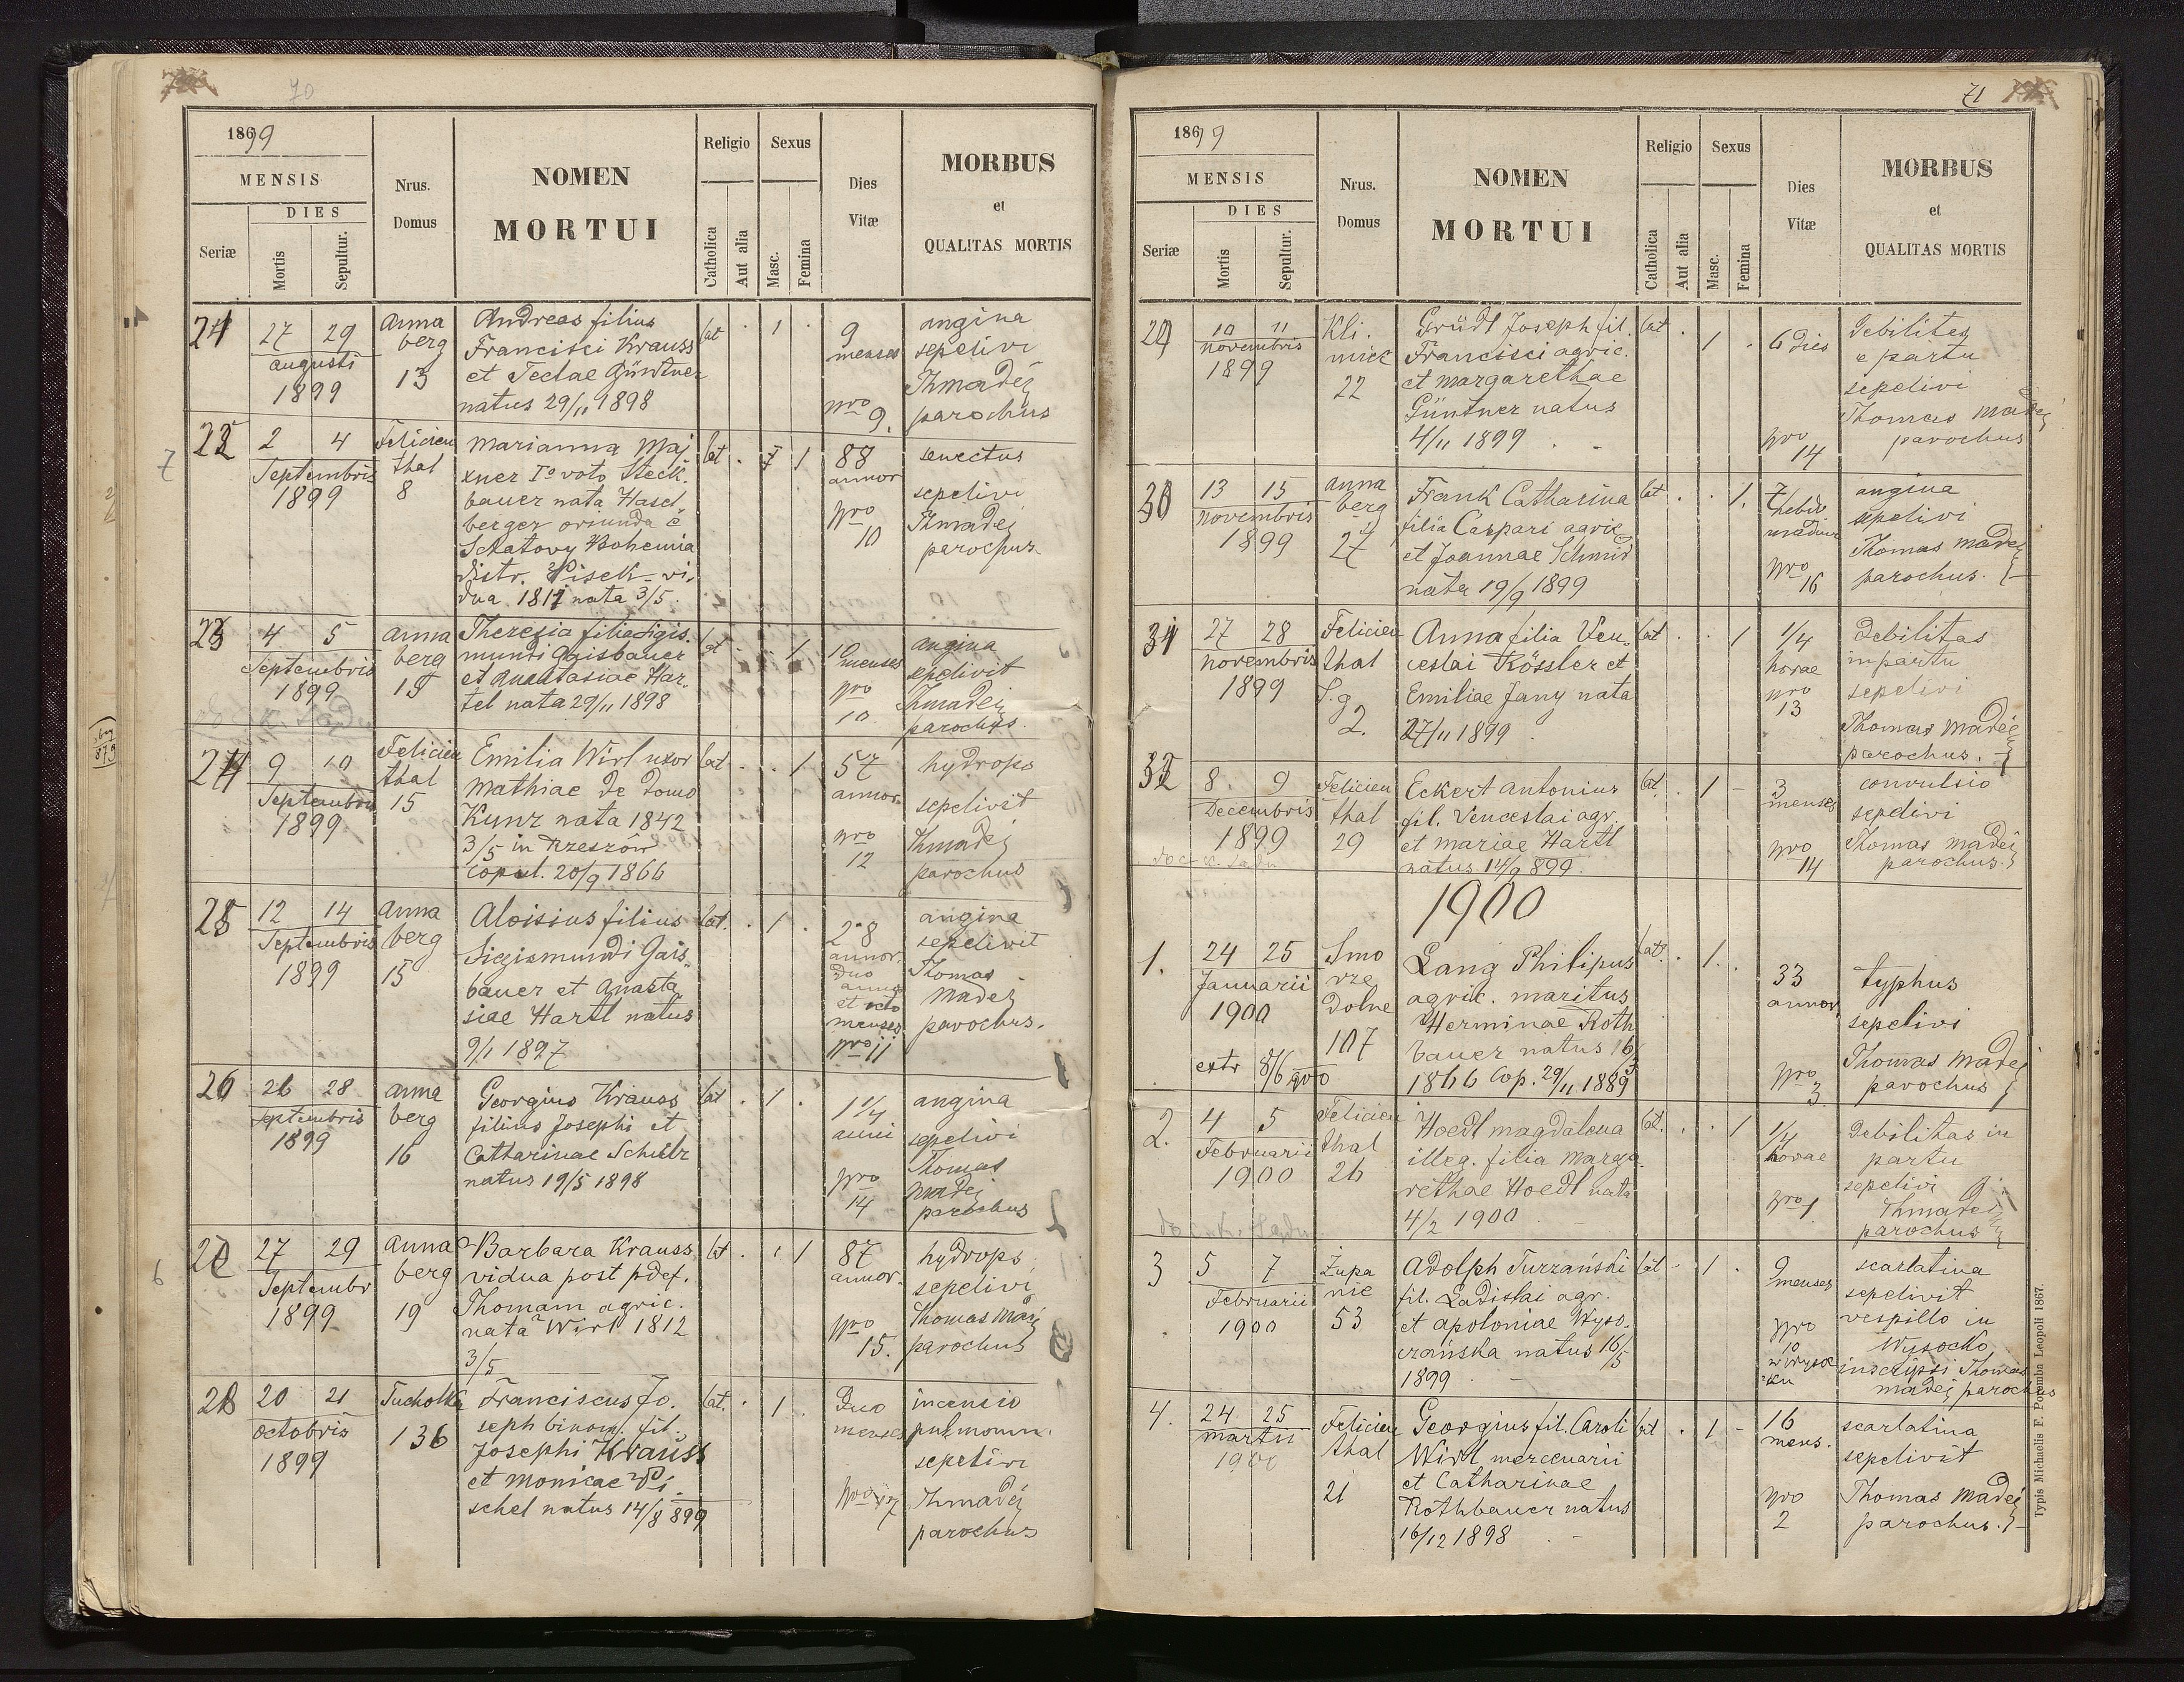 70
1899
MENSIS
DIES
Seriæ
Mortis
Sepultur.
Nrus.
Domus
NOMEN
MORTUI
Religio
Catholica
Aut alia
Sexus
Masc.
Femina
Dies
Vitæ
MORBUS
et
QUALITAS MORTIS
21
27 29
augusti
1899
Anna
berg
13
Andreas filius
Francisci Krauss
et Teclae Güntner
natus 29/11 1898
lat
1
9
menses
nro
9.
angina
sepelivi
Thmadej
parochus
7
22
2 4
Septembris
1899
Felicien
thal
8
Marianna Maj
xner Iº voto Steck.
bauer nata Hasel
berger oriunda e
Schatovy Bohemia
distr. Pisek vi.
dua 1811 nata 3/5.
lat
1
88
annor
nro
10
senectus
sepelivi
Thmadej
parochus
23
4 5
Septembris
1899
Anna
berg
15
Theresia filia Sigis.
mundi Gaisbauer
et Anastasiae Har.
tel nata 29/11 1898
lat
1
10
menses
nro
10
angina
sepelivit
Thmadej
parochus.
24
9 10
Septembris
1899
Felicien
thal
15
Emilia Wirl uxor
Mathiae de domo
Kunz nata 1842
3/5 in Rzeszów
copul. 20/9 1866
lat
1
57
annor.
nro
12
hydrops
sepelivit
Thmadej
parochus
25
12 14
Septembris
1899
Anna
berg
15
Aloisius filius
Sigismundi Gais
bauer et Anasta
siae Hartl natus
9/1 1897
lat.
1
2 8
annor.
duo
annos
et octo
menses
nro 11
angina
sepelivit
Thomas
Madej
parochus.
26
26 28
Septembris
1899
Anna
berg
16
Georgius Krauss
filius Josephi et
Catharinae Schubr
natus 19/5 1898
lat
1
1 1/4
anni
nro
14
angina
sepelivi
Thomas
Madej
parochus
6
27
27 29
Septembr
1899
Anna
berg
19
Barbara Krauss
vidua post pdef.
Thomam agric.
nata Wirl 1812
3/5
lat
1
87
annor.
nro
15.
hydrops
sepelivi
Thomas Madej
parochus
28
20 21
octobris
1899
Tucholka
136
Franciscus Jo.
seph binom. fil.
Josephi Krauss
et Monicae Pi.
schel natus 14/8 899
lat.
1
Duo
menses
nro
incensio
pulmonum.
sepelivi
Thmadej
parochus
71
1899
MENSIS
DIES
Seriæ
Mortis
Sepultur.
Nrus.
Domus
NOMEN
MORTUI
Religio
Catholica
Aut alia
Sexus
Masc.
Femina
Dies
Vitæ
MORBUS
et
QUALITAS MORTIS
29
10 11
novembris
1899
Kli.
miec
22
Gründl Joseph fil.
Francisci agric.
et Margarethae
Güntner natus
4/11 1899
lat
1
6 dies
nro
14
debilitas
e partu
sepelivi
Thomas Madej
parochus
30
13 15
novembris
1899
Anna
berg
27
Frank Catharina
filia Caspari agric
et Joannae Schmid
nata 19/9 1899
lat
1.
7
hebdo
madum
nro
16
angina
sepelivi
Thomas Madej
parochus.
31
27 28
novembris
1899
Felicien
thal
S.g
2.
Anna filia Ven.
ceslai Rössler et
Emiliae Jany nata
27/11 1899
lat
1
1/4
horae
nro
13
debilitas
in partu
sepelivi
Thomas Madej
parochus.
32
8. 9
Decembris
1899
Felicien
thal
29
Eckert Antonius
fil. Venceslai agr.
et Mariae Hartl
natus 14/9 899
lat.
1
3
menses
nro
14
convulsio
sepelivi
Thomas Madej
parochus.
1900
1.
24 25
Januarii
1900
extr 8/6 900
Smo
rze
dolne
107
Lang Philipus
agric. maritus
Herminae Roth
bauer natus 16/
1866 Cop. 29/11 1889
lat.
1.
33
annor
nro
3
typhus
sepelivi
Thomas Madej
parochus
2.
4 5
Februarii
1900
Felicien
thal
26
Hoedl Magdalena
illeg. filia Marga.
rethae Hoedl nata
4/2 1900
lat.
1
1/4
horae
nro 1
debilitas in
partu
sepelivi
Thmadej
parochus
3
5 7
Februarii
1900
Żupa
nie
53
Adolph Turzański
fil. Ladislai agr.
et Apoloniae Wyso.
czańska natus 16/5
1899
lat
1
9
menses
nro
10
w Wysoc
ku
scarlatina
sepelivit
vespillo in
Wysocko
inscripsi Thomas
Madej parochus
4.
24 25
Martii
1900
Felicien
thal
21
Georgius fil. Caroli
Wirl mercenarii
et Catharinae
Rothbauer natus
16/12 1898
lat
1
16
mens.
nro
2
scarlatina
sepelivit
Thomas Madej
parochus.
Typis Michaelis F. Poremba Leopoli 1867.